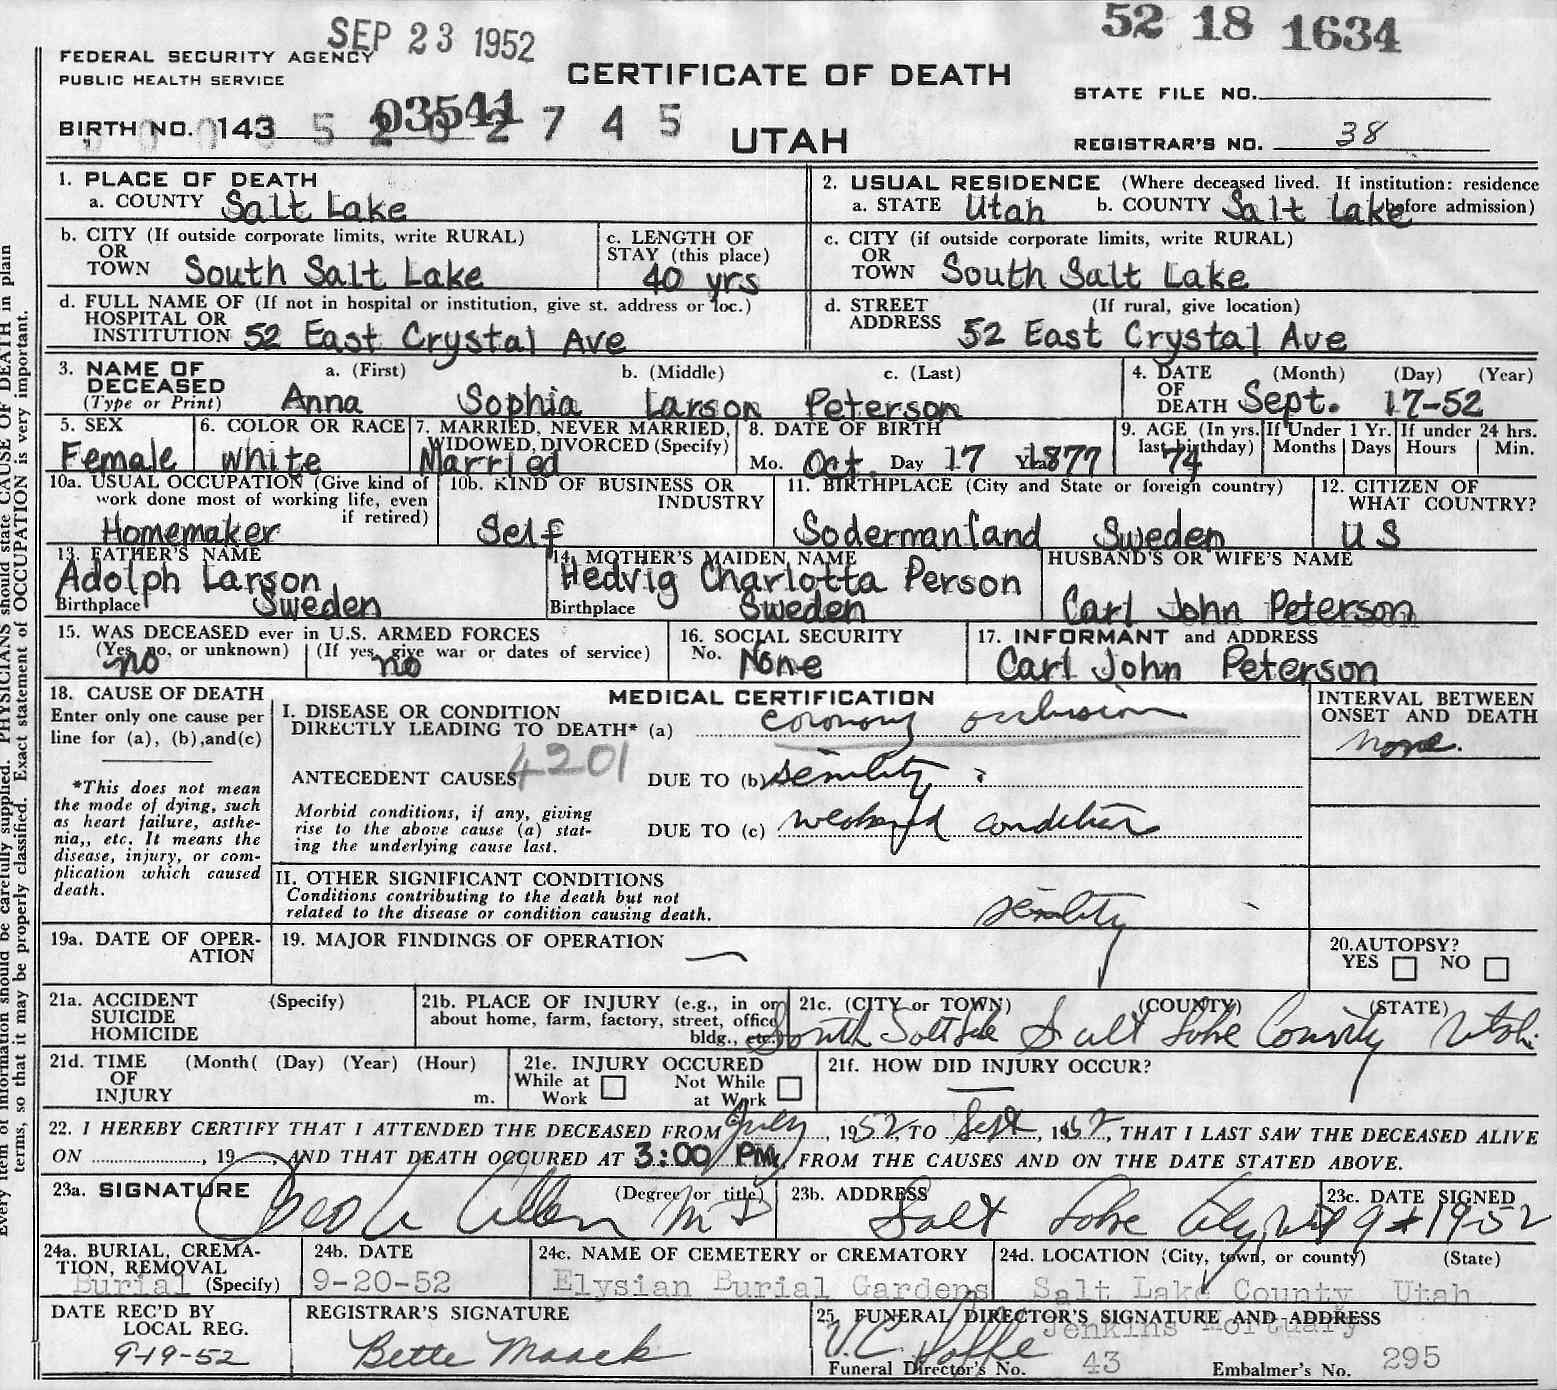 SEP 23 1952
52 18 1634
FEDERAL SECURITY AGENCY
PUBLIC HEALTH SERVICE
CERTIFICATE OF DEATH
STATE FILE NO.
BIRTH NO. 143
03541
UTAH
REGISTRAR'S NO. 38
1. PLACE OF DEATH
a. COUNTY Salt Lake
2. USUAL RESIDENCE (Where deceased lived. If institution: residence before admission)
a. STATE Utah b. COUNTY Salt Lake
b. CITY (If outside corporate limits, write RURAL)
OR
TOWN South Salt Lake
c. LENGTH OF
STAY (this place)
40 yrs
c. CITY (if outside corporate limits, write RURAL)
OR
TOWN South Salt Lake
d. FULL NAME OF (If not in hospital or institution, give st. address or loc.)
HOSPITAL OR
INSTITUTION 52 East Crystal Ave
d. STREET (If rural, give location)
ADDRESS 52 East Crystal Ave
3. NAME OF
DECEASED
(Type or Print)
a. (First) b. (Middle) c. (Last)
Anna Sophia Larson Peterson
4. DATE (Month) (Day) (Year)
OF
DEATH Sept. 17-52
5. SEX
Female
6. COLOR OR RACE
White
7. MARRIED, NEVER MARRIED,
WIDOWED, DIVORCED (Specify)
Married
8. DATE OF BIRTH
Mo. Oct. Day 17 Year 1877
9. AGE (In yrs.
last birthday)
74
If Under 1 Yr.
Months Days
If under 24 hrs.
Hours Min.
10a. USUAL OCCUPATION (Give kind of
work done most of working life, even
if retired)
Homemaker
10b. KIND OF BUSINESS OR
INDUSTRY
Self
11. BIRTHPLACE (City and State or foreign country)
Sodermanland Sweden
12. CITIZEN OF
WHAT COUNTRY?
US
13. FATHER'S NAME
Adolph Larson
Birthplace Sweden
14. MOTHER'S MAIDEN NAME
Hedvig Charlotta Person
Birthplace Sweden
HUSBAND'S OR WIFE'S NAME
Carl John Peterson
15. WAS DECEASED ever in U.S. ARMED FORCES
(Yes, no, or unknown) (If yes, give war or dates of service)
no no
16. SOCIAL SECURITY
No. None
17. INFORMANT and ADDRESS
Carl John Peterson
18. CAUSE OF DEATH
Enter only one cause per
line for (a), (b),and(c)
*This does not mean
the mode of dying, such
as heart failure, asthe-
nia,, etc. It means the
disease, injury, or com-
plication which caused
death.
MEDICAL CERTIFICATION
I. DISEASE OR CONDITION
DIRECTLY LEADING TO DEATH* (a) coronary occlusion
ANTECEDENT CAUSES 4201 DUE TO (b) senility
Morbid conditions, if any, giving
rise to the above cause (a) stat-
ing the underlying cause last.
DUE TO (c) weakened condition
INTERVAL BETWEEN
ONSET AND DEATH
none.
II. OTHER SIGNIFICANT CONDITIONS
Conditions contributing to the death but not
related to the disease or condition causing death.
senility
19a. DATE OF OPER-
ATION
19. MAJOR FINDINGS OF OPERATION
20.AUTOPSY?
YES NO
21a. ACCIDENT (Specify)
SUICIDE
HOMICIDE
21b. PLACE OF INJURY (e.g., in or
about home, farm, factory, street, office
bldg., etc.)
21c. (CITY or TOWN) (COUNTY) (STATE)
South Salt Lake Salt Lake County Utah
21d. TIME (Month( (Day) (Year) (Hour)
OF
INJURY m.
21e. INJURY OCCURED
While at Work Not While at Work
21f. HOW DID INJURY OCCUR?
22. I HEREBY CERTIFY THAT I ATTENDED THE DECEASED FROM July, 1952, TO Sept, 1952, THAT I LAST SAW THE DECEASED ALIVE
ON , 19 , AND THAT DEATH OCCURED AT 3:00 PM, FROM THE CAUSES AND ON THE DATE STATED ABOVE.
23a. SIGNATURE (Degree or title)
Allen MD
23b. ADDRESS
Salt Lake City
23c. DATE SIGNED
9-19-52
24a. BURIAL, CREMA-
TION, REMOVAL
Burial (Specify)
24b. DATE
9-20-52
24c. NAME OF CEMETERY or CREMATORY
Elysian Burial Gardens
24d. LOCATION (City, town, or county) (State)
Salt Lake County Utah
DATE REC'D BY
LOCAL REG.
9-19-52
REGISTRAR'S SIGNATURE
Bette Maack
25. FUNERAL DIRECTOR'S SIGNATURE AND ADDRESS
Jenkins Mortuary
Funeral Director's No. 43 Embalmer's No. 295
Every item of information should be carefully supplied. PHYSICIANS should state CAUSE OF DEATH in plain
terms, so that it may be properly classified. Exact statement of OCCUPATION is very important.